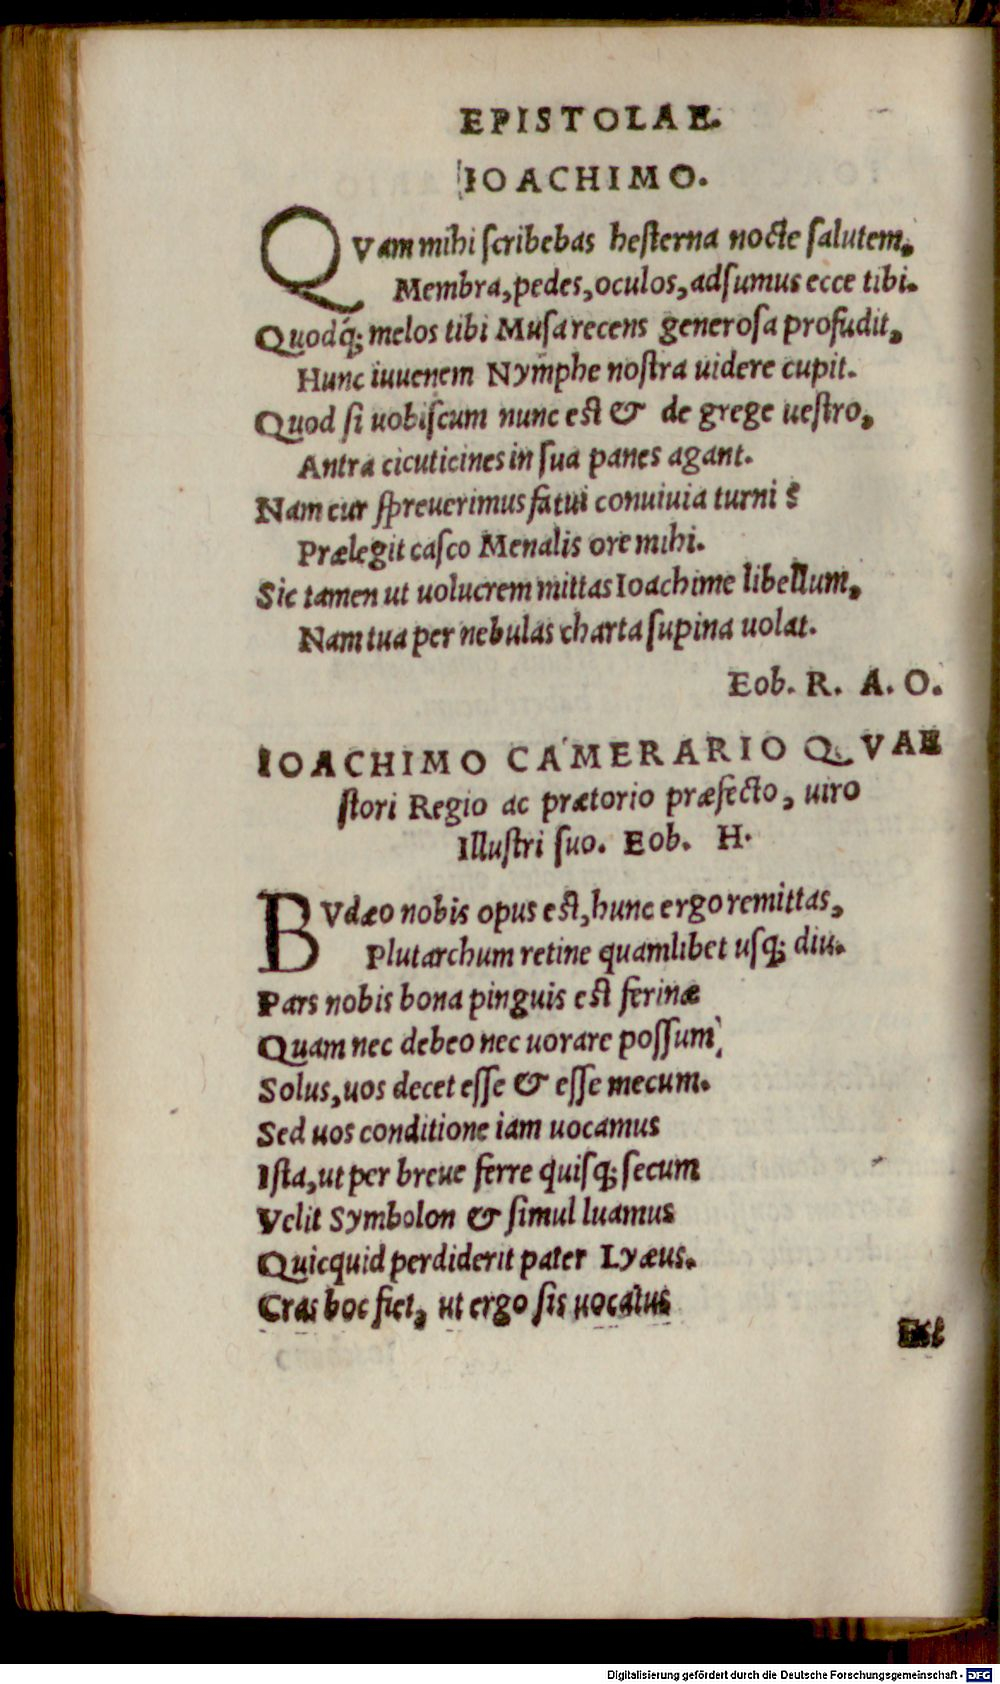 EPISTOLAE.
IOACHIMO.
QVam mihi ſcribebas heſterna nocte ſalutem,
Membra, pedes, oculos, adſumus ecce tibi.
Quodq́; melos tibi Muſa recens generoſa profudit,
Hunc iuuenem Nymphe noſtra uidere cupit.
Quod ſi uobiſcum nunc eſt & de grege ueſtro,
Antra cicuticines in ſua panes agant.
Nam cur ſpreuerimus fatui conuiuia turni?
Prælegit caſco Menalis ore mihi.
Sic tamen ut uolucrem mittas Ioachime libellum,
Nam tua per nebulas charta ſupina uolat.
Eob. R. A. O.
IOACHIMO CAMERARIO QVAE
ſtori Regio ac prætorio præfecto, uiro
Illuſtri ſuo. Eob. H.
BVdæo nobis opus eſt, hunc ergo remittas,
Plutarchum retine quamlibet uſq; diu.
Pars nobis bona pinguis eſt ferinæ
Quam nec debeo nec uorare poſſum,
Solus, uos decet eſſe & eſſe mecum.
Sed uos conditione iam uocamus
Iſta, ut per breue ferre quiſq; ſecum
Velit Symbolon & ſimul luamus
Quicquid perdiderit pater Lyæus.
Cras hoc fiet, ut ergo ſis uocatus
Digitalisierung gefördert durch die Deutsche Forschungsgemeinschaft - DFG